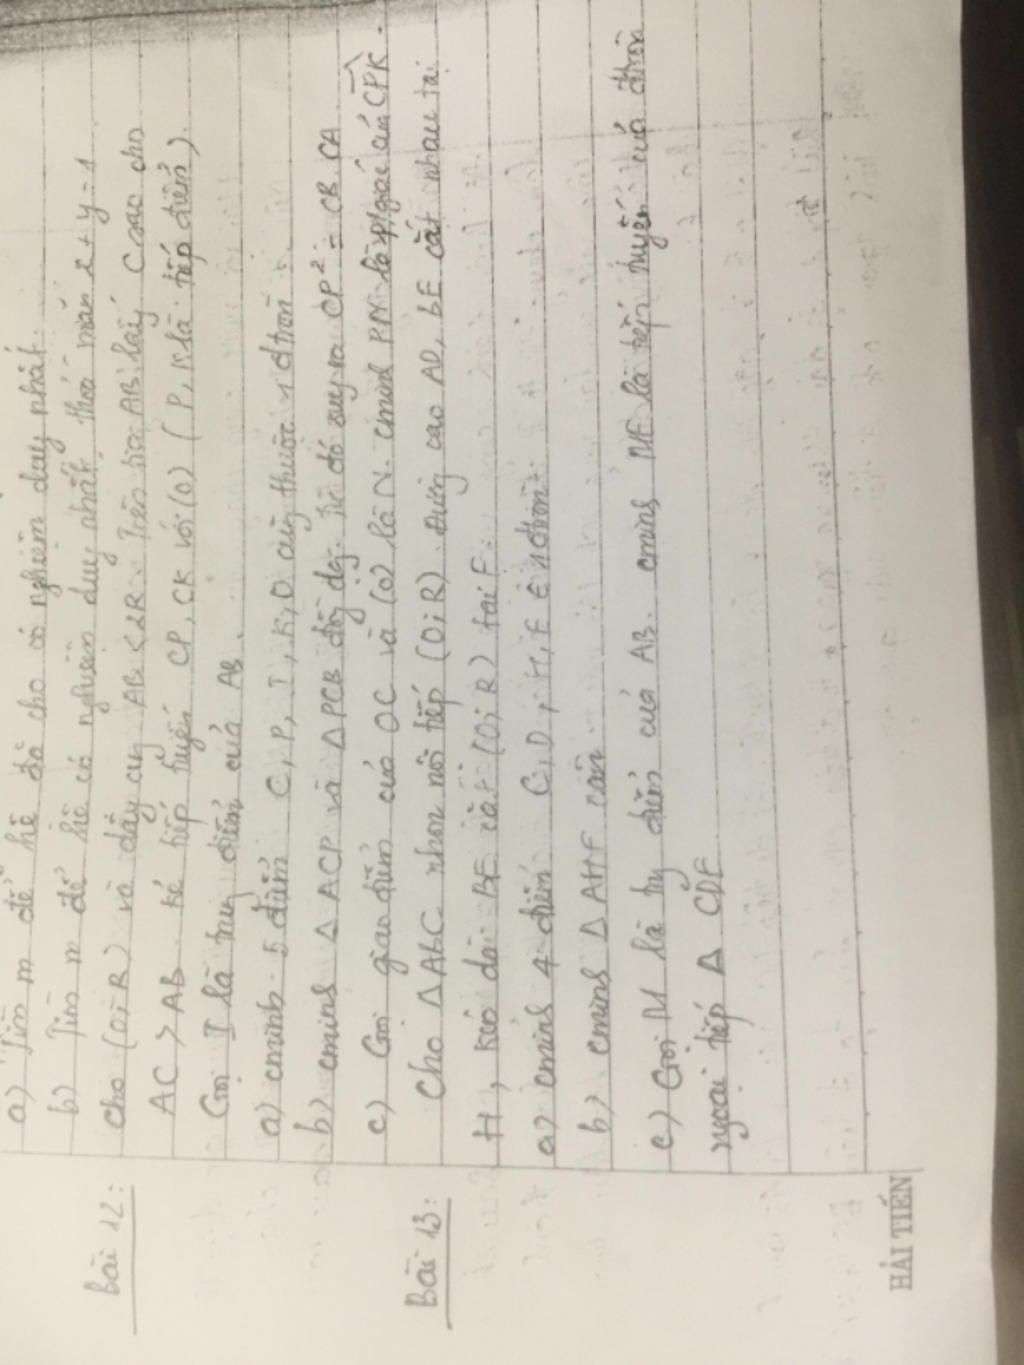 a) Tìm m để hệ đã cho có nghiệm duy nhất.
b) Tìm m để hệ có nghiệm duy nhất thoả mãn 2 + y = 1
Bài 12: Cho (O; R) và dây cg AB < 2R. Trên tia AB lấy C sao cho
AC > AB. kẻ tiếp tuyến CP, CK với (O) (P, K là tiếp điểm).
Gọi I là trung điểm của AB.
a) cminh 5 điểm C, P, I, K, O cùng thuộc 1 đtròn.
b) cminh Δ ACP và Δ PCB đồg dạg. Từ đó suy ra CP² = CB. CA
c) Gọi giao điểm của OC và (O) là N. cminh PN là p/giác của CPK.
Bài 13: Cho Δ ABC nhọn nội tiếp (O; R). Đường cao AD, BE cắt nhau tại
H, kéo dài BE cắt (O; R) tại F.
a) cminh 4 điểm C, D, H, E ∈ 1 đtròn.
b) cminh Δ AHF cân.
c) Gọi M là trg điểm của AB. cminh ME là tiếp tuyến của đtròn
ngoại tiếp Δ CDE
HẢI TIẾN